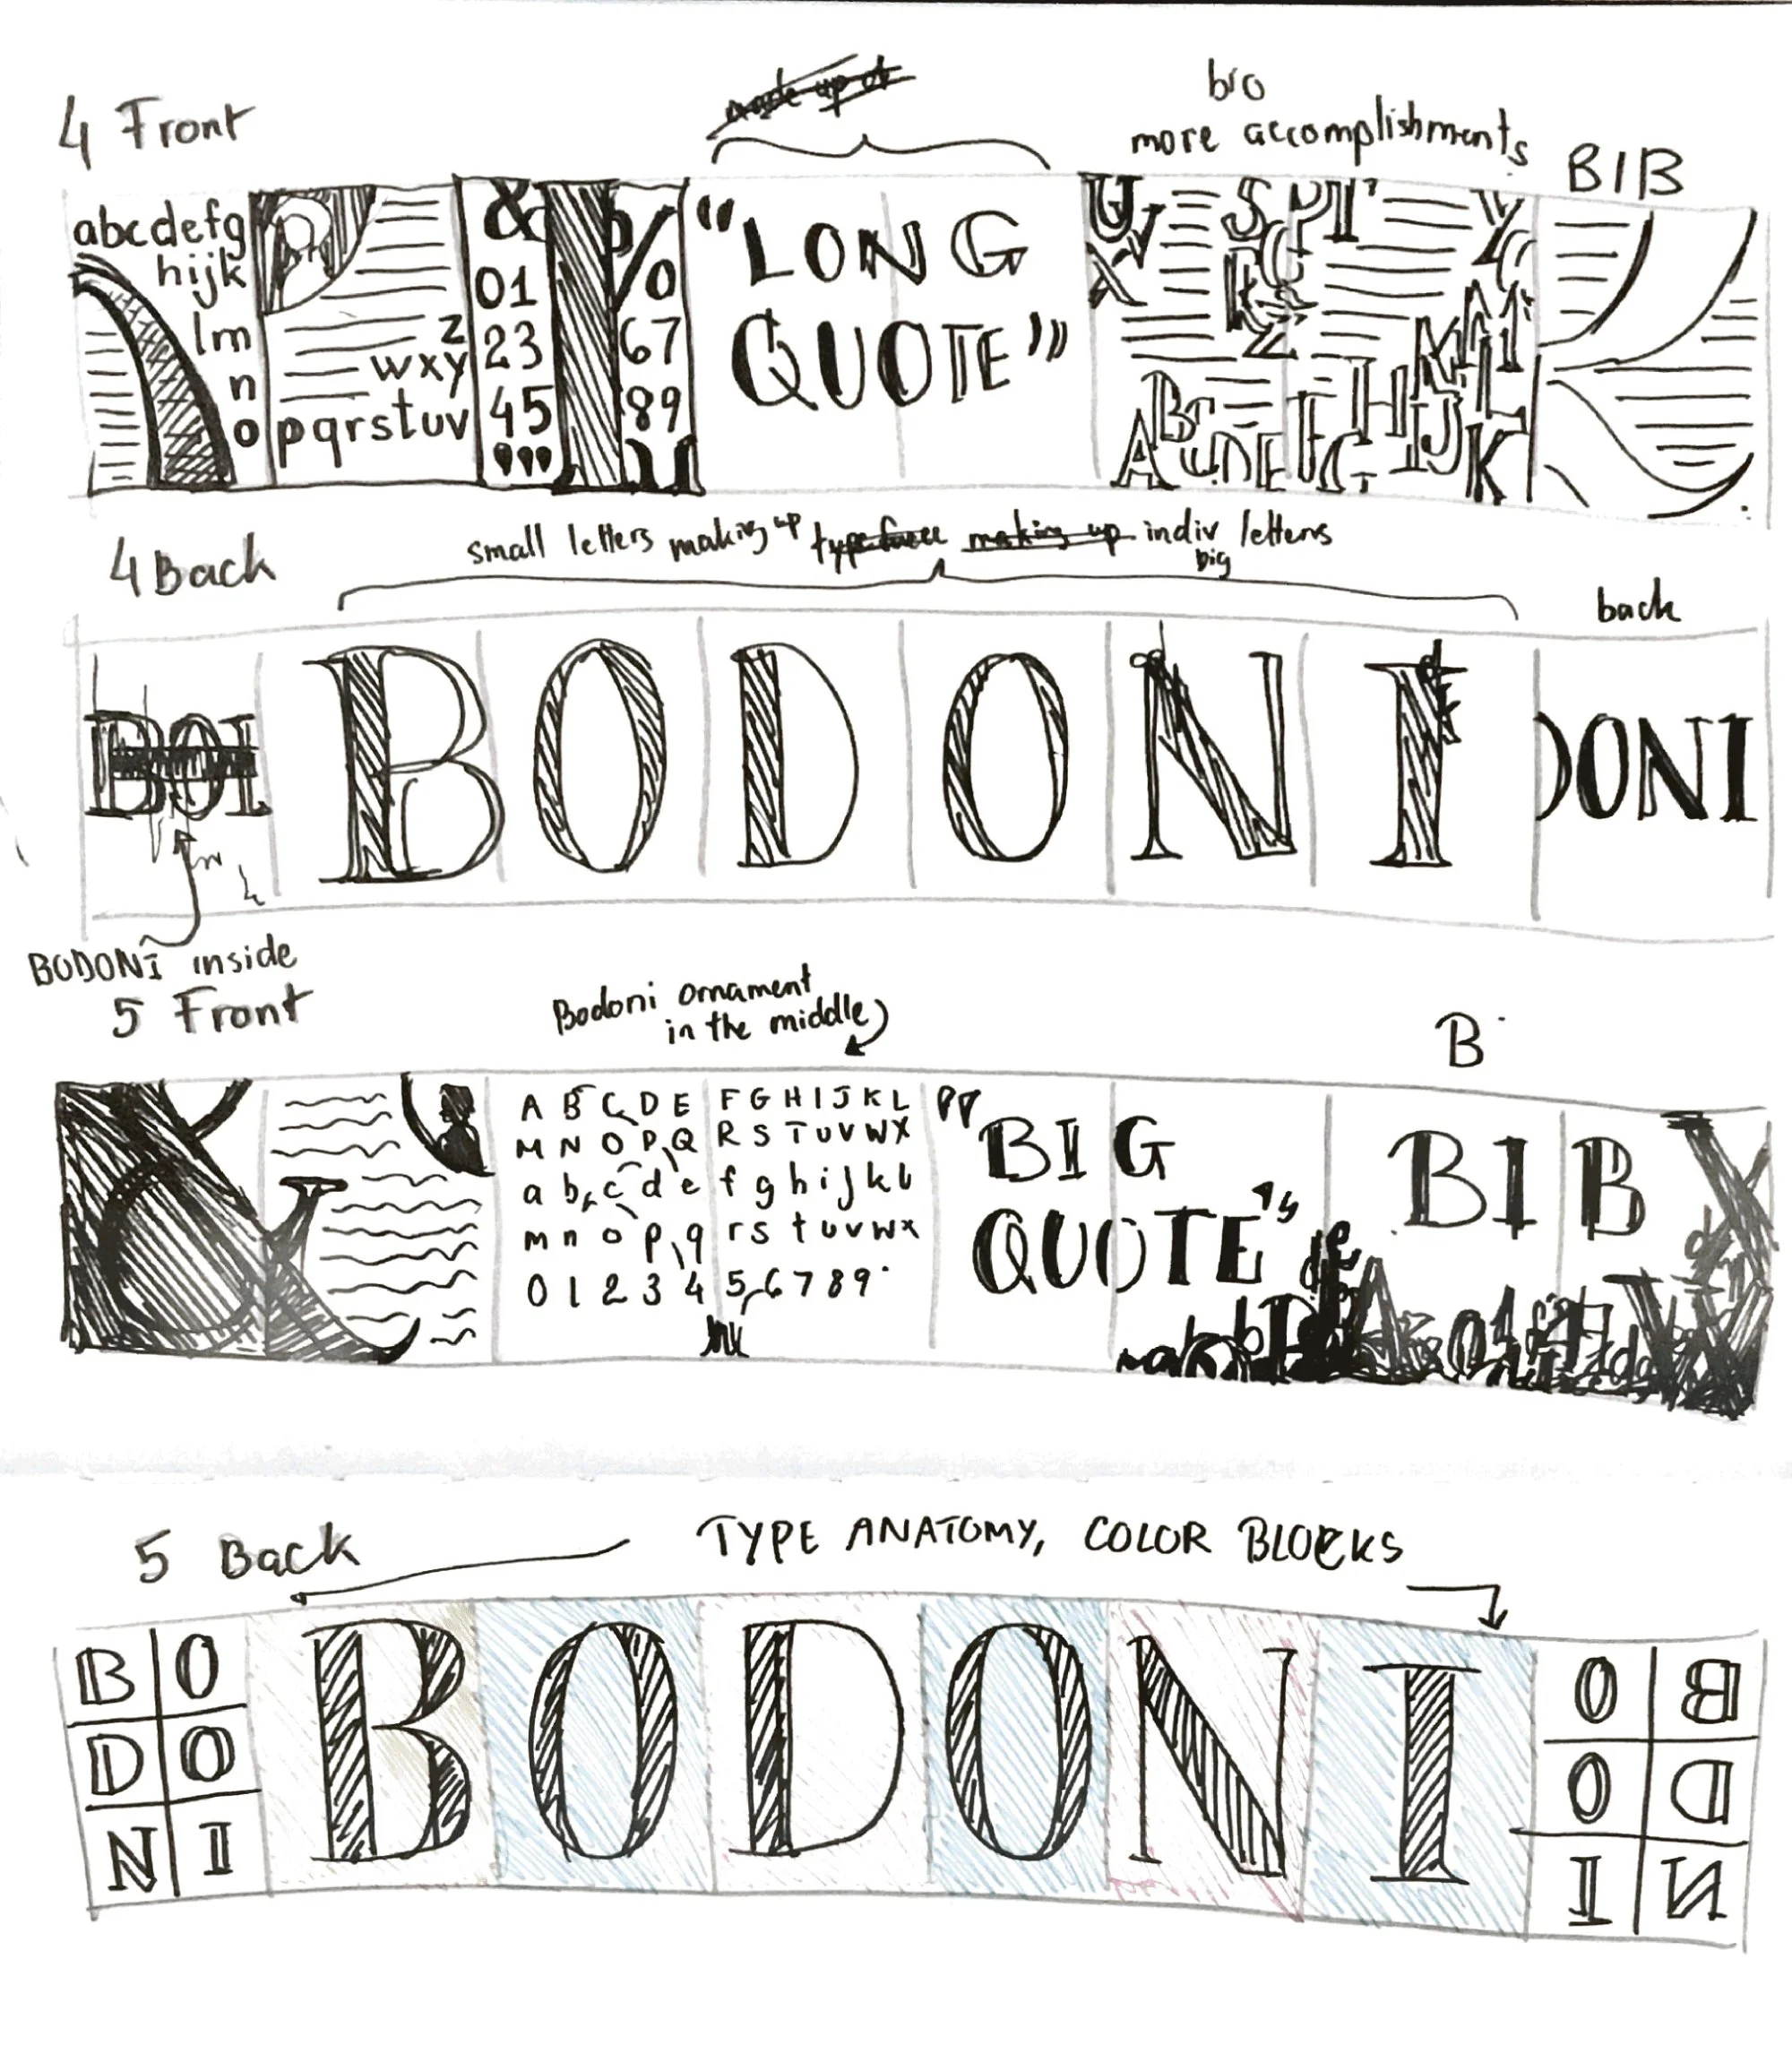 4 Front
made up of
bio
more accomplishments
BIB
abcdefg
hijk
lm
n
o
pqrstuv
wxy
z
&
%
01
23
45
67
89
"LONG
QUOTE"
U
V
X
S
P
T
Z
A B C D E F G H I J K L M
4 Back
small letters making up typeface making up indiv letters
big
back
BOI
BODONI
DONI
BODONI inside
5 Front
Bodoni ornament
in the middle
B
A B C D E F G H I J K L
M N O P Q R S T U V W X
a b c d e f g h i j k l
m n o p q r s t u v w x
0 1 2 3 4 5 6 7 8 9
"BIG
QUOTE"
BIB
5 Back
TYPE ANATOMY, COLOR BLOCKS
B O
D O
N I
BODONI
O B
O D
I N